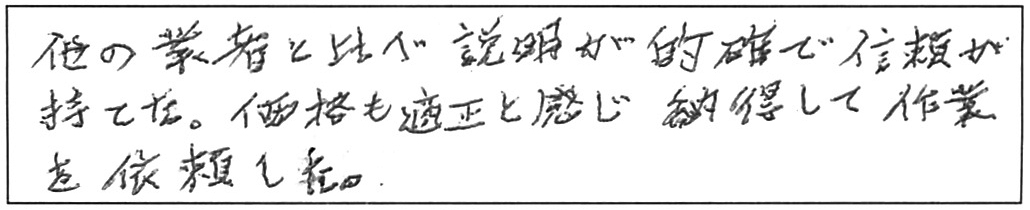 他の業者と比べ説明が的確で信頼が
持てた。価格も適正と感じ納得して作業
を依頼した。